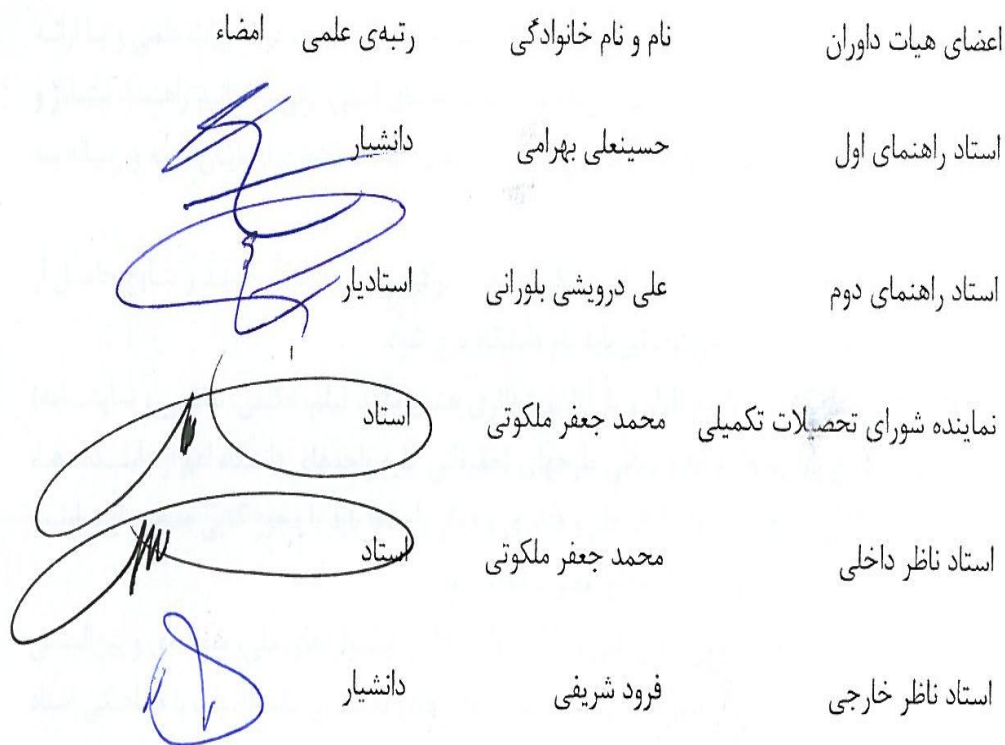 اعضای هیات داوران نام و نام خانوادگی رتبه‌ی علمی امضاء
استاد راهنمای اول حسینعلی بهرامی دانشیار
استاد راهنمای دوم علی درویشی بلورانی استادیار
نماینده شورای تحصیلات تکمیلی محمد جعفر ملکوتی استاد
استاد ناظر داخلی محمد جعفر ملکوتی استاد
استاد ناظر خارجی فرود شریفی دانشیار